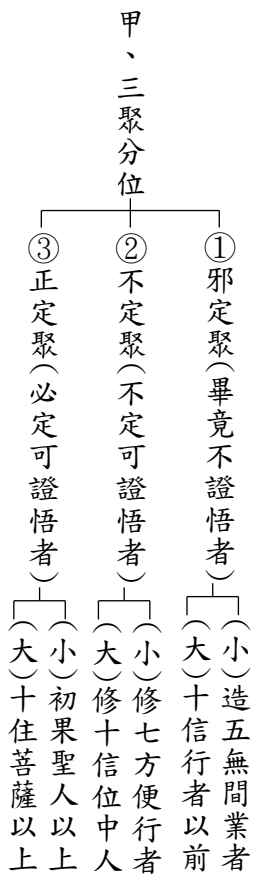 甲、三聚分位
①邪定聚（畢竟不證悟者）
（小）造五無間業者
（大）十信行者以前
②不定聚（不定可證悟者）
（小）修七方便行者
（大）修十信位中人
③正定聚（必定可證悟者）
（小）初果聖人以上
（大）十住菩薩以上